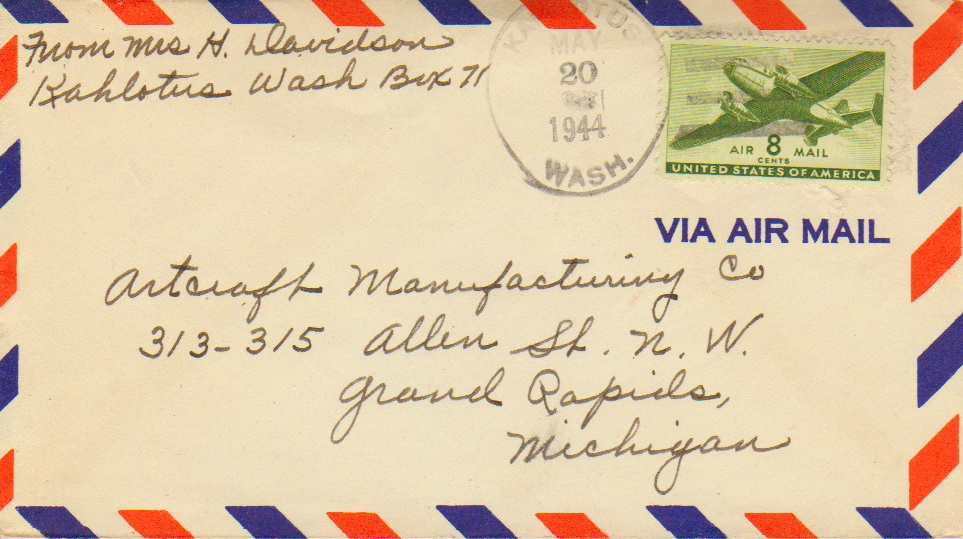 From Mrs H. Davidson
Kahlotus Wash Box 71
KAHLOTUS
MAY
20
1944
WASH.
AIR 8 MAIL
CENTS
UNITED STATES OF AMERICA
VIA AIR MAIL
Artcraft Manufacturing Co
313-315 Allen St. N. W.
Grand Rapids,
Michigan